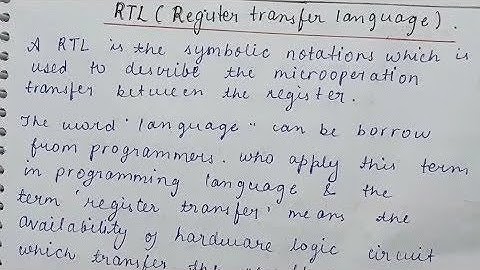 RTL (Register transfer language).
A RTL is the symbolic notations which is
used to describe the microoperation
transfer between the register.
The word "language" can be borrow
from programmers. who apply this term
in programming language & the
term 'register transfer' means the
availability of hardware logic circuit
which transfer the